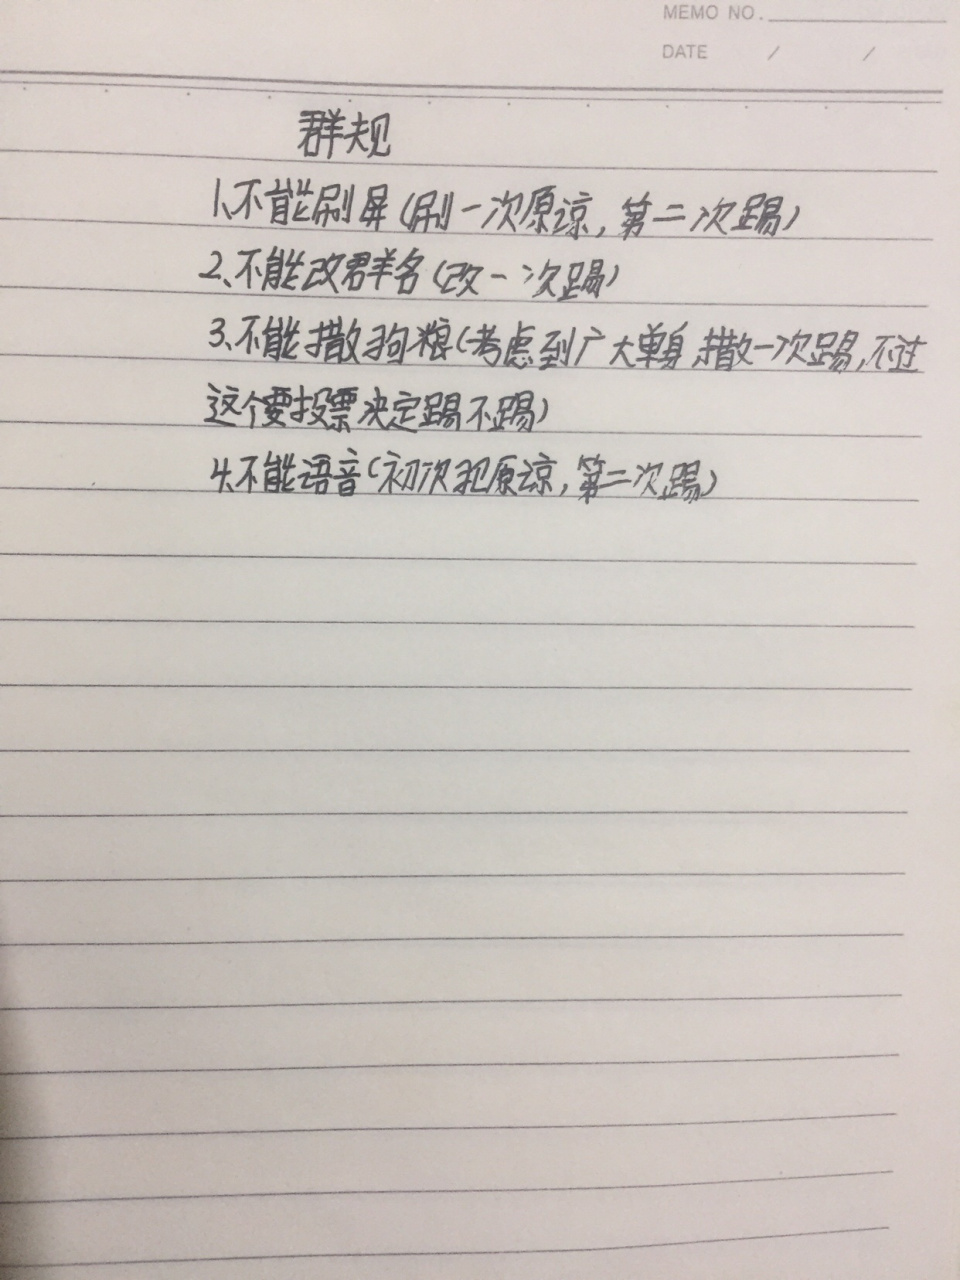 MEMO NO.
DATE / /
群规
1、不能刷屏(刷一次原谅,第二次踢)
2、不能改群名(改一次踢)
3、不能撒狗粮(考虑到广大单身,撒一次踢,不过
这个要投票决定踢不踢)
4、不能语音(初次犯原谅,第二次踢)